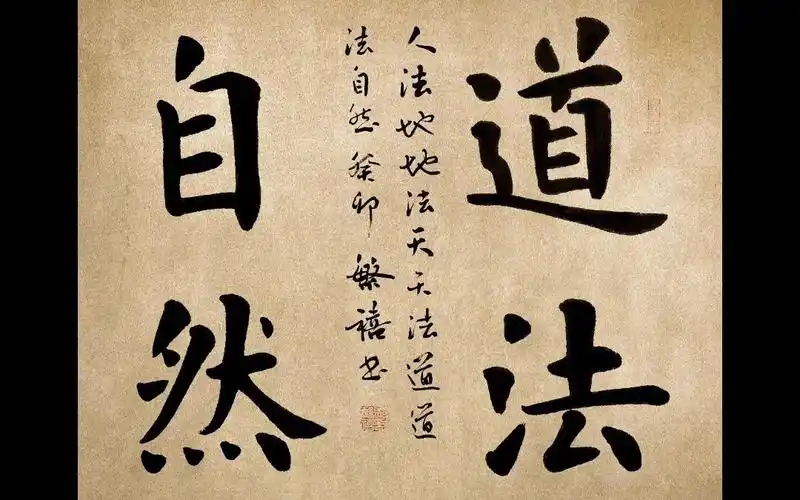 道法
人法地地法天天法道道
法自然 癸卯 繁禧书
自然